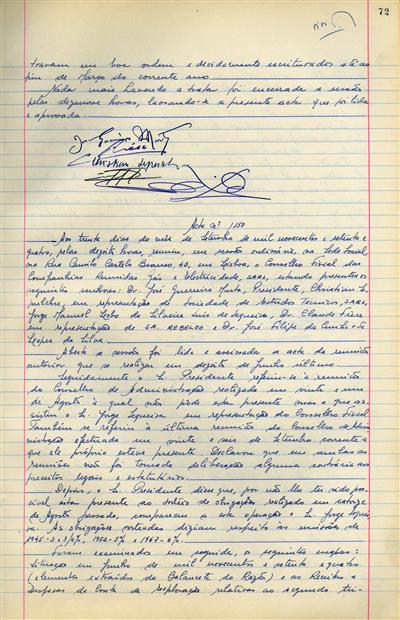 72
travam em boa ordem e devidamente escriturados até ao
fim de Março do corrente ano.
Nada mais havendo a tratar foi encerrada a sessão
pelas dezanove horas, lavrando-se a presente acta que foi lida
e aprovada.
Acta nº 1150
Aos trinta dias do mês de Setembro de mil novecentos e setenta e
quatro, pelas dezoito horas, reuniu, em sessão ordinária, na Sede Social
na Rua Camilo Castelo Branco, 43, em Lisboa, o Conselho Fiscal das
Companhias Reunidas Gás e Electricidade, SARL, estando presentes os
seguintes senhores: Dr. José Guerreiro Murta, Presidente, Christian
em representação da Sociedade de Estudos Técnicos, SARL,
Jorge Manuel Lobo de Luis de Sequeira, Dr. Claude
em representação de SA. e Dr. José Filipe da Cunha
Lopes da Silva.
Aberta a sessão foi lida e assinada a acta da reunião
anterior que se realizou em dezoito de Junho último.
Seguidamente o S. Presidente referiu-se à reunião
do Conselho de Administração realizada em vinte e um
de Agosto à qual não pôde estar presente mas a que as-
sistiu o S. Jorge Sequeira em representação do Conselho Fiscal
Também se referiu à última reunião do Conselho de Admi-
nistração efectuada em vinte e seis de Setembro corrente a
que ele próprio esteve presente. Declarou que em ambas as
reuniões não foi tomada deliberação alguma contrária aos
preceitos legais e estatutários.
Depois, o S. Presidente disse que, por não lhe ter sido pos-
sível estar presente ao sorteio de obrigações realizado em catorze
de Agosto passado, compareceu a esta operação o S. Jorge Sequei-
ra. As obrigações sorteadas diziam respeito às emissões de
1952-5% e 1967-6%.
Foram examinados em seguida, os seguintes mapas:
Situação em Junho de mil novecentos e setenta e quatro
(elementos extraídos do Balancete do Razão) e as Receitas e
Despesas da Conta de Exploração relativas ao segundo tri-